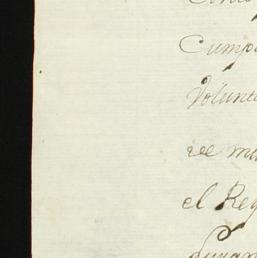 Cump
Volunt
de mu
el Rey
duran